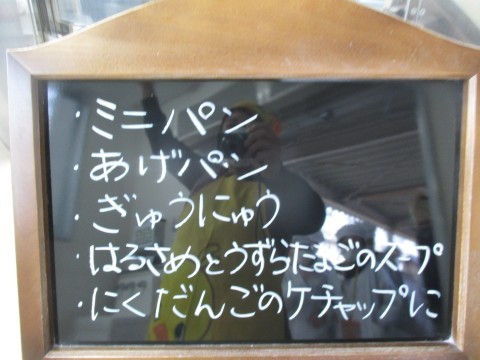 ・ミニパン
・あげパン
・ぎゅうにゅう
・はるさめとうずらたまごのスープ
・にくだんごのケチャップに